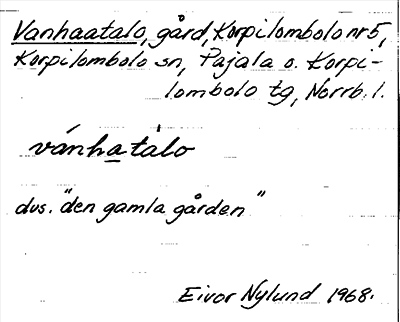 Vanhaatalo, gård, Korpilombolo nr 5,
Korpilombolo sn, Pajala o. Korpi-
lombolo tg, Norrb. l.
vánhatàlo
dvs. "den gamla gården"
Eivor Nylund 1968.